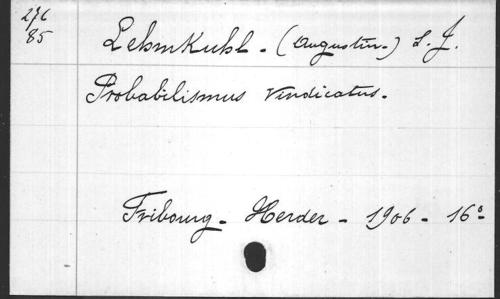 276
85
Lehmkuhl - (Augustin-) S. J.
Probabilismus Vindicatus.
Fribourg - Herder - 1906 - 16°